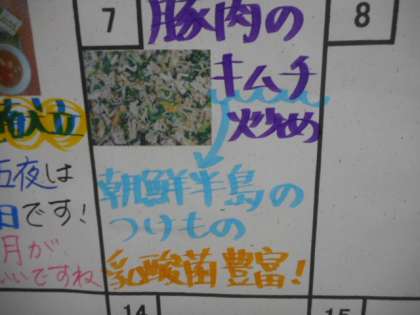 7
豚肉の
キムチ
炒め
朝鮮半島の
つけもの
乳酸菌豊富!
8
献立
五夜は
日です!
月が
いいですね
14
15